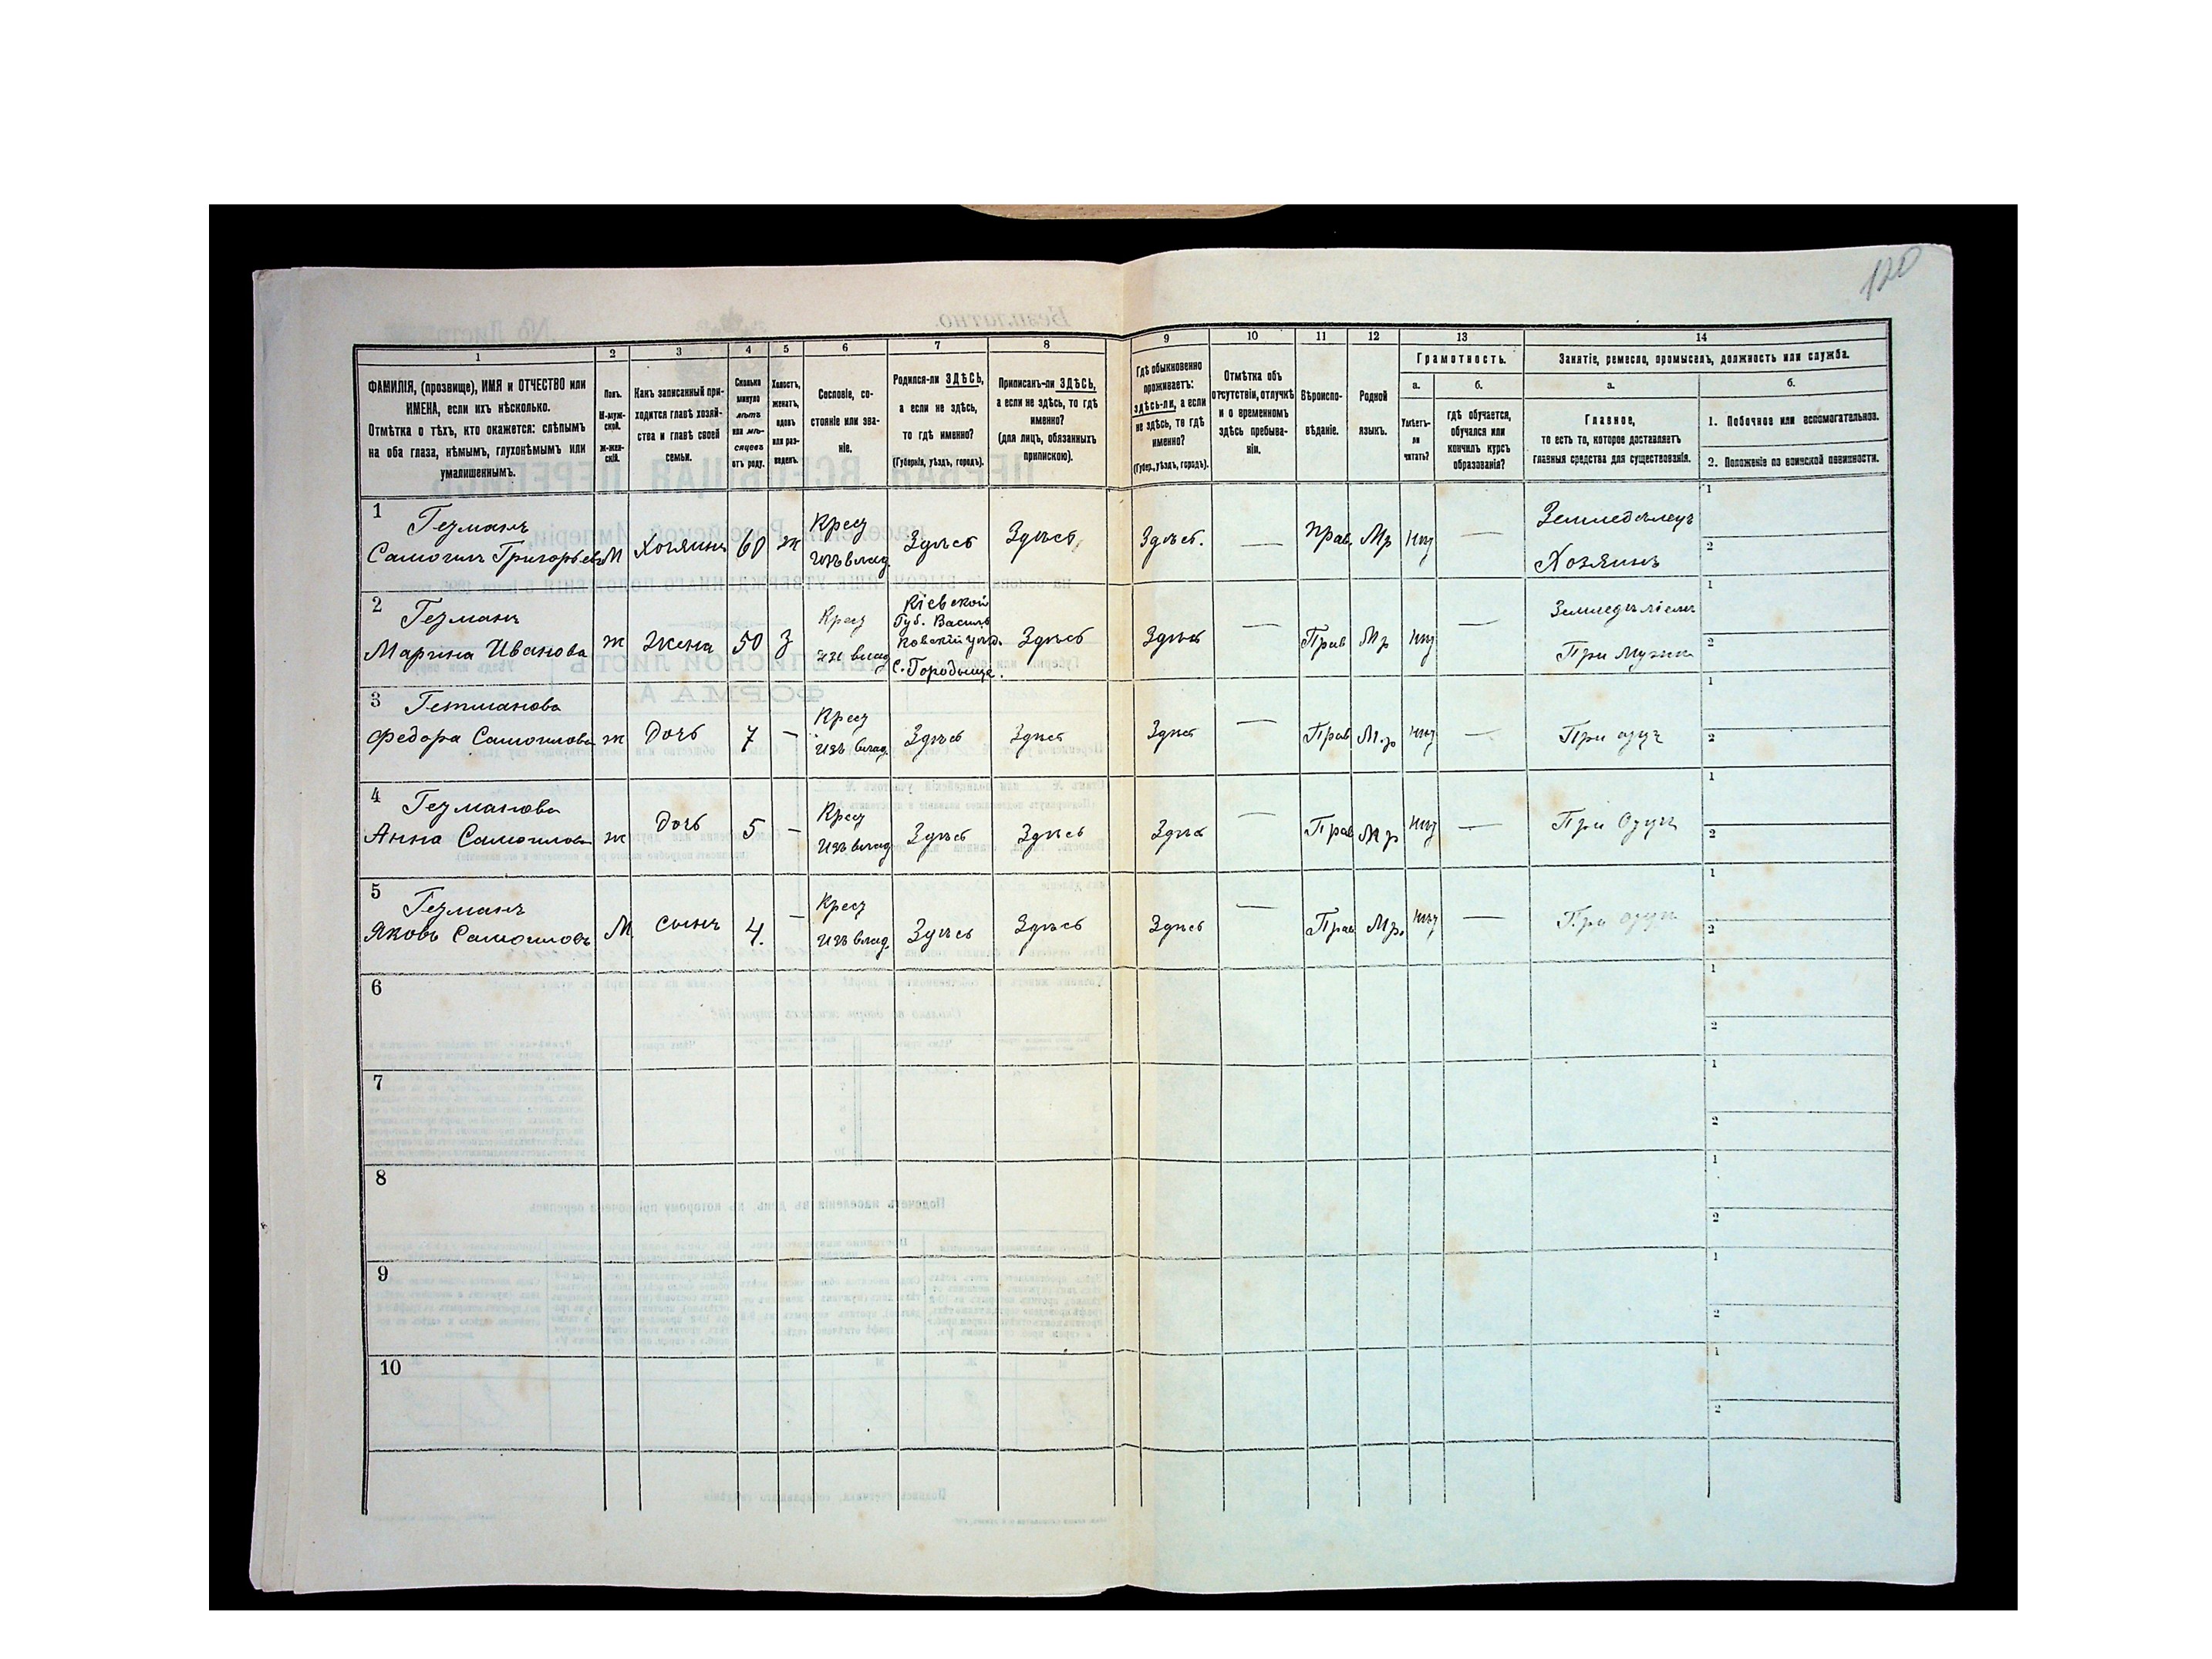 120
1
2
3
4
5
6
7
8
9
10
11
12
13
14
ФАМИЛІЯ, (прозвище), ИМЯ и ОТЧЕСТВО или
ИМЕНА, если ихъ нѣсколько.
Отмѣтка о тѣхъ, кто окажется: слѣпымъ
на оба глаза, нѣмымъ, глухонѣмымъ или
умалишеннымъ.
Полъ.
М-муж-
ской.
Ж-жен-
скій.
Какъ записанный при-
ходится главѣ хозяй-
ства и главѣ своей
семьи.
Сколько
минуло
лѣтъ
или мѣ-
сяцевъ
отъ роду.
Холостъ,
женатъ,
вдовъ
или раз-
веденъ.
Сословіе, со-
стояніе или зва-
ніе.
Родился-ли ЗДѢСЬ,
а если не здѣсь,
то гдѣ именно?
(Губернія, уѣздъ, городъ).
Приписанъ-ли ЗДѢСЬ,
а если не здѣсь, то гдѣ
именно?
(для лицъ, обязанныхъ
припискою).
Гдѣ обыкновенно
проживаетъ:
здѣсь-ли, а если
не здѣсь, то гдѣ
именно?
(Губер., уѣздъ, городъ).
Отмѣтка объ
отсутствіи, отлучкѣ
и о временномъ
здѣсь пребыва-
ніи.
Вѣроиспо-
вѣданіе.
Родной
языкъ.
Грамотность.
а.
б.
Умѣетъ-
ли
читать?
гдѣ обучается,
обучался или
кончилъ курсъ
образованія?
Занятіе, ремесло, промыселъ, должность или служба.
а.
б.
Главное,
то есть то, которое доставляетъ
главныя средства для существованія.
1. Побочное или вспомогательное.
2. Положеніе по воинской повинности.
1
Гетманъ
Самоилъ Григорьевъ
М
Хозяинъ
60
ж
Крест
Изъ влад.
Здѣсь
Здѣсь
Здѣсь.
—
Прав.
Мр
Нѣт
—
Земледѣлецъ
Хозяинъ
1
2
2
Гетманъ
Марина Иванова
ж
Жена
50
З
Крест
изъ влад
Кіевской
Губ. Василь
ковскій уѣзд.
с. Городыще.
Здѣсь
Здѣсь
—
Прав
Мр
Нѣт
—
При Мужѣ
1
2
3
Гетманова
Федора Самоилова
ж
Дочь
7
—
Крест
Изъ влад.
Здѣсь
Здѣсь
Здѣсь
—
Прав
М.р
Нѣт
—
При отцѣ
1
2
4
Гетманова
Анна Самоилова
ж
Дочь
5
—
Крест
Изъ влад
Здѣсь
Здѣсь
Здѣсь
—
Прав
Мр
Нѣт
—
При Отцѣ
1
2
5
Гетманъ
Яковъ Самоиловъ
М
Сынъ
4.
—
Крест
Изъ влад.
Здѣсь
Здѣсь
Здѣсь
—
Прав
Мр.
Нѣт
—
При отцѣ
1
2
6
1
2
7
1
2
8
1
2
9
1
2
10
1
2